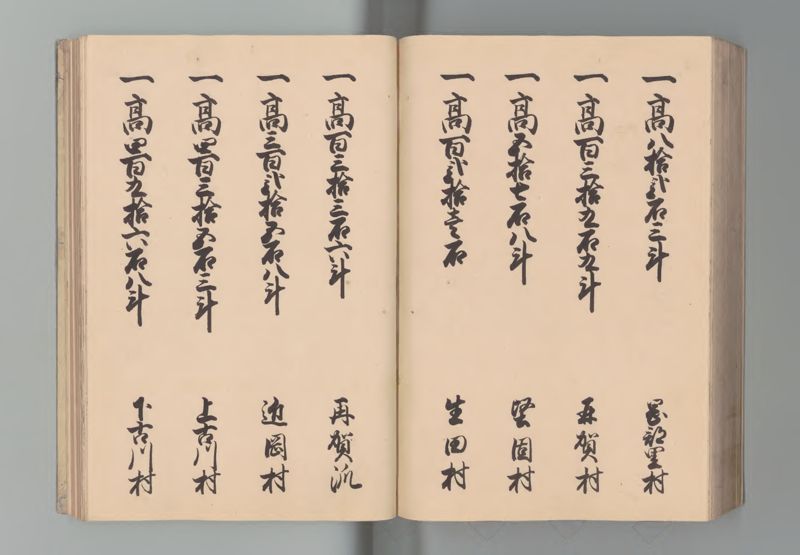 一高八拾弐石三斗
村
一高百三拾九石九斗
賀村
一高五拾七石八斗
堅固村
一高百弐拾壱石
生田村
一高百三拾三石六斗
再賀
一高三百弐拾五石八斗
岡村
一高四百三拾五石三斗
上古川村
一高四百九拾六石八斗
下古川村